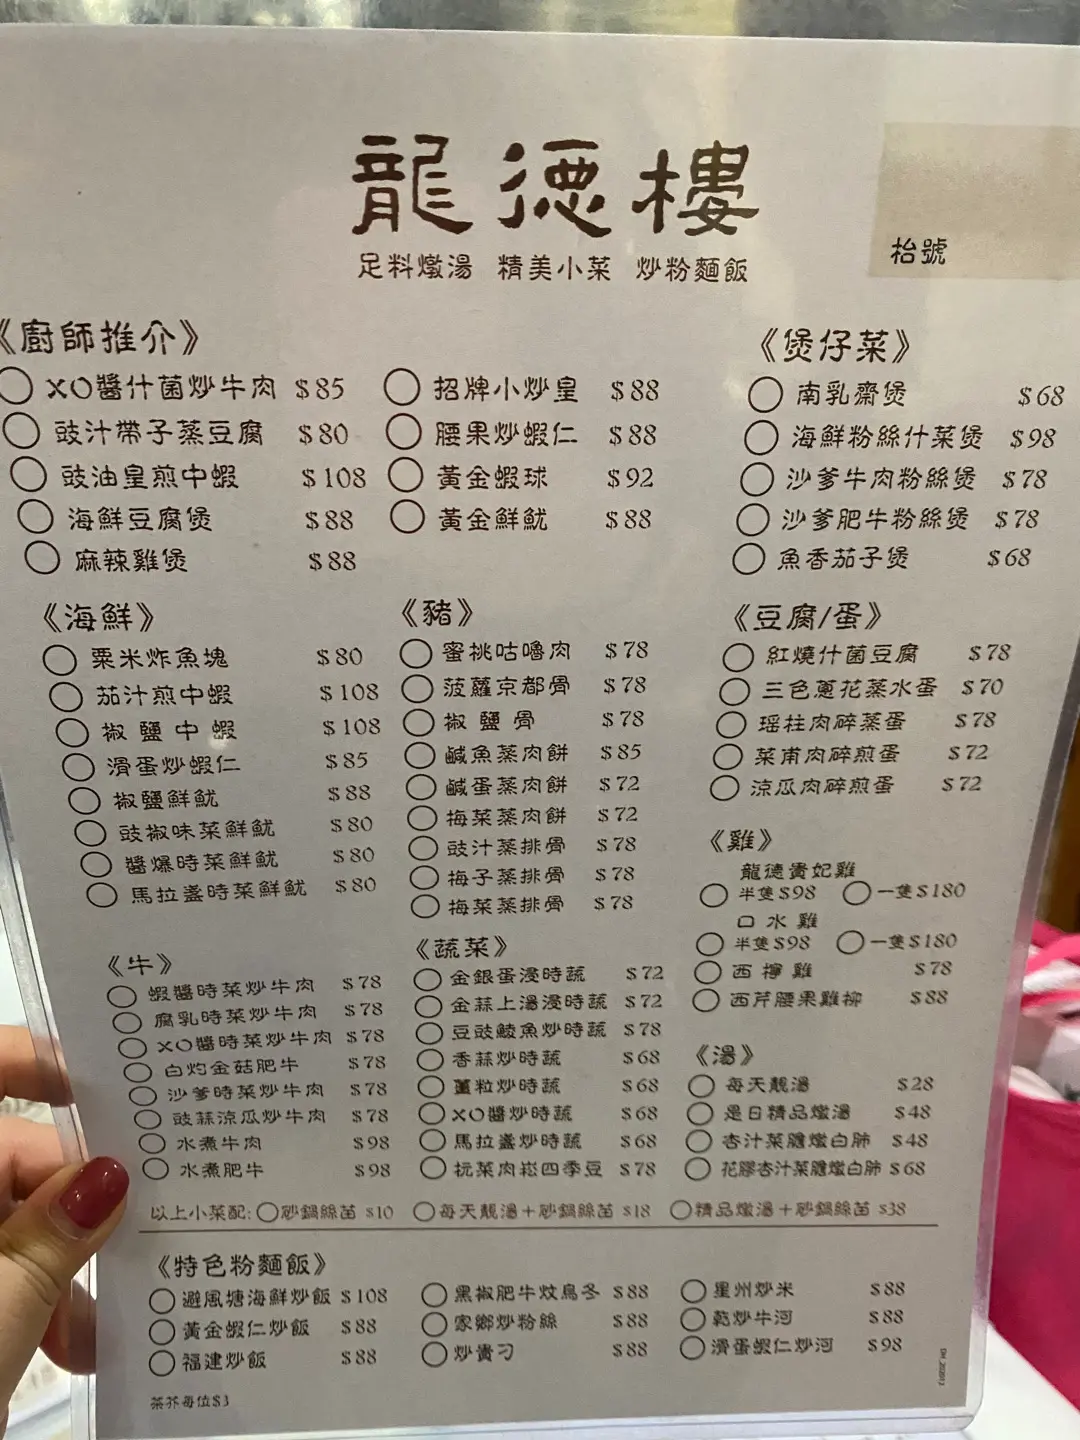 龍德樓
足料燉湯 精美小菜 炒粉麵飯
枱號
《廚師推介》
XO醬什菌炒牛肉 $85
豉汁帶子蒸豆腐 $80
豉油皇煎中蝦 $108
海鮮豆腐煲 $88
麻辣雞煲 $88
招牌小炒皇 $88
腰果炒蝦仁 $88
黃金蝦球 $92
黃金鮮魷 $88
《煲仔菜》
南乳齋煲 $68
海鮮粉絲什菜煲 $98
沙爹牛肉粉絲煲 $78
沙爹肥牛粉絲煲 $78
魚香茄子煲 $68
《海鮮》
粟米炸魚塊 $80
茄汁煎中蝦 $108
椒鹽中蝦 $108
滑蛋炒蝦仁 $85
椒鹽鮮魷 $88
豉椒味菜鮮魷 $80
醬爆時菜鮮魷 $80
馬拉盞時菜鮮魷 $80
《豬》
蜜桃咕嚕肉 $78
菠蘿京都骨 $78
椒鹽骨 $78
鹹魚蒸肉餅 $85
鹹蛋蒸肉餅 $72
梅菜蒸肉餅 $72
豉汁蒸排骨 $78
梅子蒸排骨 $78
梅菜蒸排骨 $78
《豆腐/蛋》
紅燒什菌豆腐 $78
三色蔥花蒸水蛋 $70
瑶柱肉碎蒸蛋 $78
菜甫肉碎煎蛋 $72
涼瓜肉碎煎蛋 $72
《雞》
龍德貴妃雞
半隻$98 一隻$180
口水雞
半隻$98 一隻$180
西檸雞 $78
西芹腰果雞柳 $88
《牛》
蝦醬時菜炒牛肉 $78
腐乳時菜炒牛肉 $78
XO醬時菜炒牛肉 $78
白灼金菇肥牛 $78
沙爹時菜炒牛肉 $78
豉蒜涼瓜炒牛肉 $78
水煮牛肉 $98
水煮肥牛 $98
《蔬菜》
金銀蛋浸時蔬 $72
金蒜上湯浸時蔬 $72
豆豉鯪魚炒時蔬 $78
香蒜炒時蔬 $68
薑粒炒時蔬 $68
XO醬炒時蔬 $68
馬拉盞炒時蔬 $68
抏菜肉崧四季豆 $78
《湯》
每天靚湯 $28
是日精品燉湯 $48
杏汁菜膽燉白肺 $48
花膠杏汁菜膽燉白肺 $68
以上小菜配: 砂鍋絲苗 $10 每天靚湯+砂鍋絲苗 $18 精品燉湯+砂鍋絲苗 $38
《特色粉麵飯》
避風塘海鮮炒飯 $108
黃金蝦仁炒飯 $88
福建炒飯 $88
黑椒肥牛炆烏冬 $88
家鄉炒粉絲 $88
炒貴刁 $88
星州炒米 $88
乾炒牛河 $88
滑蛋蝦仁炒河 $98
茶芥每位$3